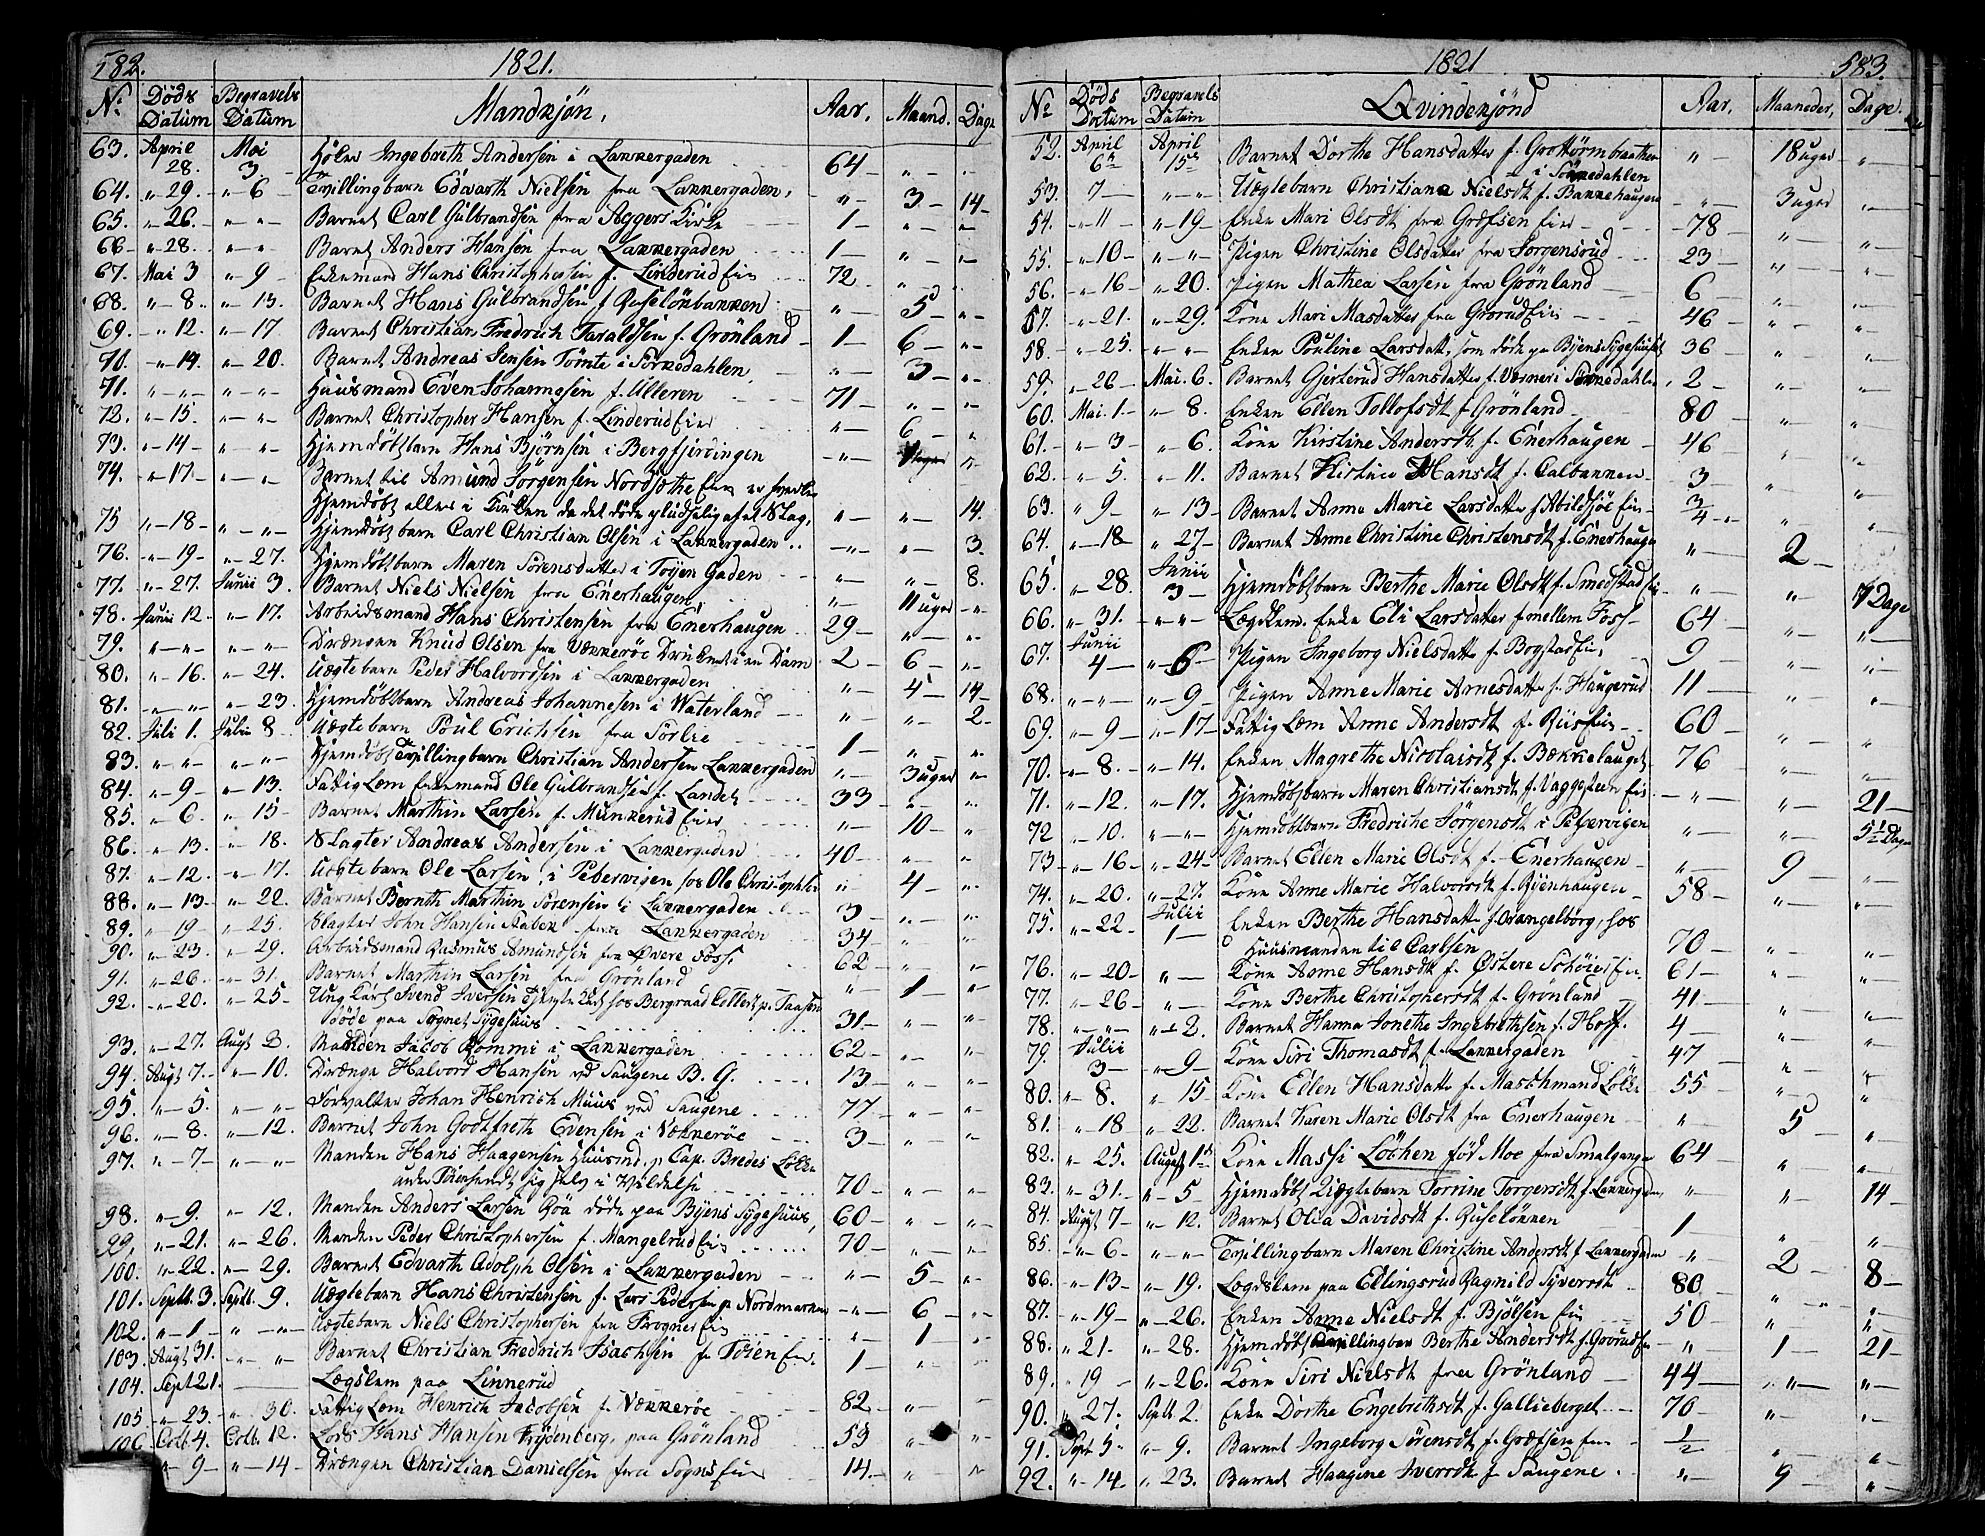 582.
1821.
No Döds Datum Begravels Datum Mandkjön, Aar. Maand. Dage
63. April 28. Mai 3 Ingebreth Andersen i Lakkergaden 64 — " — "
64. " 29. " 6 Tvillingbarn Edvarth Nielsen fra Lakkergaden, " — 3 — 14 —
65. " 26. " " Barnet Carl Gulbrandsen fra Aggers Kirke 1 — " — "
66 " 28. " " Barnet Anders Hansen fra Lakkergaden 1 — " — "
67. Mai 3 " 9 Enkemand Hans Christophersen f. Linderud Eier 72 — " — "
68. " 8. " 13. Barnet Hans Gulbrandsen f. " — 5 — "
69. " 12. " 17 Barnet Christian Fredrich Taraldsen f. Grönland 1 — 6 — "
70. " 14. " 20. Barnet Andreas Jensen Tömte i Sörkedahlen " — 3 — "
71. " " " " Huusmand Even Johannesen f. Ulleren 71 — " — "
72. " 15. " " Barnet Christopher Hansen f. Linderud Eier " — 6 — "
73. " 14 " " Hjemdöbt barn Hans Björnsen i Bergfierdingen " — "
74. " 17. " " Barnet til Amund Jörgensen
Hjemdöbt eller i Kirken da det döde af et Slag, " — " — 14.
75 " 18 " " Hjemdöbt barn Carl Christian Olsen i Lakkergaden " — " — 3
76. " 19 " 27. Hjemdöbt barn Maren Sörensdatter i Töyen Gaden " — " — 8.
77. " 27. Junii 3. Barnet Niels Nielsen fra Enerhaugen " — 11 uger "
78. Junii 12. " 17. Arbeidsmand Hans Christensen fra Enerhaugen 29 — " — "
79. " " " " Drængen Knud Olsen fra Vækkeröe Druknet i en Dam 2 — 6 — "
80. " 16. " 24. Uægte barn Peder Halvordsen i Lakkergaden " — 5 — 14 —
81. " " " 23. Hjemdöbt barn Andreas Johannesen i Waterland " — " — 2 —
82. Juli 1. Julii 8 Uægte barn Poul Erichsen fra Sörlie 1 — " — "
83. " " " " Hjemdöbt Tvillingbarn Christian Andersen Lakkergaden " — 3 uger "
84. " 9 " 13. Fattig Lem Enkemand Ole Gulbrandsen f. Landet 33 — " — "
85. " 6. " 15 Barnet Marthin Larsen f. Munkerud Eier " — 10 — "
86. " 13. " 18. Slagter Andreas Andersen i Lakkergaden 40 — " — "
87. " 12. " 17. Uægte barn Ole Larsen, i Pebervigen hos Ole Christophersen " — 4 — "
88. " 13 " 22. Barnet Bernth Marthin Sörensen i Lakkergaden 3 — " — "
89. " 19 " 25. Slagter John Hansen fra Lakkergaden 34 — " — "
90. " 23. " 29. Arbeidsmand Rasmus Amundsen fra Övere Foss 62 — " — "
91. " 26. " 31. Barnet Marthin Larsen fra Grönland " — 1 — "
92. " 20. " 25. Ung Karl Svend Iversen hos Bergraad Collett p. Taasen
döde paa Sognets Sygehuus 31 — " — "
93. " 27. Augt 3. Manden Jacob Rommi i Lakkergaden 62 — " — "
94. Augt 7. " 10. Drænge Halvord Hansen ved Saugene B. G. 13 — " — "
95. " 5. " " Forvalter Johan Henrich Muus ved Saugene 77 — " — "
96. " 8. " 12. Barnet John Godtfreth Evensen i Vækkeröe 3 — " — "
97. " 7 " " Manden Hans Haagensen Huusmd. p. Cap. Bredes Lökke
sig selv i Vildelse 70 — " — "
98. " 9. " 12. Manden Anders Larsen Röa döde paa Byens Sygehuus, 60 — " — "
99. " 21. " 26. Manden Peder Christophersen f. Mangelrud Eier 70 — " — "
100. " 22. " 29. Barnet Edvarth Adolph Olsen i Lakkergaden " — 5 — "
101. Septb. 3. Septb. 9. Uægte barn Hans Christensen f. Lars Pedersen p. Nordmarken " — 6 — "
102. " 1 " " Uægte barn Niels Christophersen fra Frogner Eie " 1 — "
103. Augt 31. " " Barnet Christian Fredrich Isachsen f. Töien Eie 1 — " — "
104. Sept 21. Lægslem paa Linnerud
105 " 23. " 30. Fattig Lem Henrich Jacobsen f. Vækkeröe 82 — "
106 Octb 4. Octb. 12. Lods Hans Hansen Frydenberg, paa Grönland 53 " — "
" 9 " 14 Drængen Christian Danielsen fra Sogns Eie 14. " — "
1821
583.
No Döds Datum Begravels Datum Qvindekjönd Aar. Maaneder, Dage.
52. April 6te April 15de Barnet Dorthe Hansdatter f.
i Sörkedahlen " — 18 uger "
53. 7 — " " Uægtebarn Christiana Nielsdt f. Bakkehaugen " — 3 uger "
54. " 11 " 19 Enke Mari Olsdt fra Grefsen Eie 78 " "
55. " 10 " " Pigen Christine Olsdatter fra Torgensrud 23 — " "
56. " 16 " 20. Pigen Mathea Larsen fra Grönland 6 " "
57. " 21. " 29. Kone Mari Masdatter fra Grorud Eie 46 " "
58. " 25. " " Enken Pouline Larsdatt. som döde paa Byens Sygehuset 36 " "
59. " 26 Mai. 6. Barnet Gjertrud Hansdatter f. i Sörkedahlen 2 " "
60. Mai. 1 " 8. Enken Ellen Tollofsdt f. Grönland 80 " "
61. " 3 " 6. Kone Kirstine Andersdt f. Enerhaugen 46 " "
62. " 5. " 11. Barnet Kistine Hansdt f. Calbakken 3 " "
63. " 9 " 13 Barnet Anne Marie Larsdatter f. Abildsöe Eie 3/4 " "
64. " 18 " 27 Barnet Anne Christine Christensdt f. Enerhaugen " 2 —
65. " 28. Junii 3 — Hjemdöbt barn Berthe Marie Olsdt f. Smedstad Eie " " 7 Dage
66. " 31. " " Lægdlem. Enke Eli Larsdatter f. mellem Foss 64 " "
67. Junii 4 — " 6 — Pigen Ingeborg Nielsdatter f. Bogstad Eie, 9 " "
68. " " " 9 Pigen Anne Marie Arnesdatter f. Haugerud 11 " "
69. " 9 " 17 Fattig Lem Anne Andersdt f. Riis Eie 60 " "
70. " 8. " 14. Enken Magrethe Nicolaisdt f. Bækkelauget 76 " "
71. " 12. " 17. Hjemdöbt barn Maren Christiansdt f. Vaggesteen Eie " " 21 —
72 " 10. " " Hjemdöbt barn Fredriche Jörgensdt i Pebervigen " " 5 1/2 Dage
73 " 16 " 24 Barnet Ellen Marie Olsdt f. Enerhaugen " 9 "
74. " 20. " 27. Kone Anne Marie Halvorsdt f. Ryenhaugen 58 — " "
75. " 22. Julii 1 — Enken Berthe Hansdatter f. hos
Huusmanden til Carlsen 70 " "
76. " 20 " — Kone Anne Hansdt f. Østere Schöien Eie 61 " "
77. " 26 " — Kone Berthe Christophersdt f. Grönland 41 " "
78. " " " 2. Barnet Hanna Jonethe Ingebrethsen f. Hoff. 4 " "
79. Julii 3 — " 9 — Kone Siri Thomasdt f. Lakkergaden 47 " "
80. " 8. " 15 Kone Ellen Hansdatter f. Maschmand Lökke 55 " "
81. " 18 " 22. Barnet Karen Marie Olsdt fra Enerhaugen " 5 "
82. " 25. August 1st Kone Massi Löchen föd Moe fra Smalgangen 64 " "
83. " 31. " 5 Hjemdöbt Uægtebarn Torrine Torgersdt f. Lakkergaden " " 14 —
84. August 7 " 12. Barnet Olia Davidsdt f. 1 " "
85. " 6 " " Tvillingbarn Maren Christine Andersdt f. Lakkergaden " 2 8 —
86. " 13 " 19. Lægdslem paa Ellingsrud Ragnild Syversdt 80 " "
87. " 19 " 26. Enken Anne Nielsdt f. Bjölsen Eie 50 " "
88. " 21 " 28. Hjemdöbt Tvillingbar Berthe Andersdt f. Grorud Eie " 1 — 21 —
89. " 19 " 26. Kone Siri Nielsdt fra Grönland 44 " "
90. " 27. Septb 2. Enke Dorthe Engebrethsdt f. Gallieberget 70 " "
91. Sept 5 " 9. Barnet Ingeborg Sörensdt f. Grefsen Eie 1/2 " "
92. " 14. " 23. Barnet Haagine Iversdt f. Saugene " 9 "